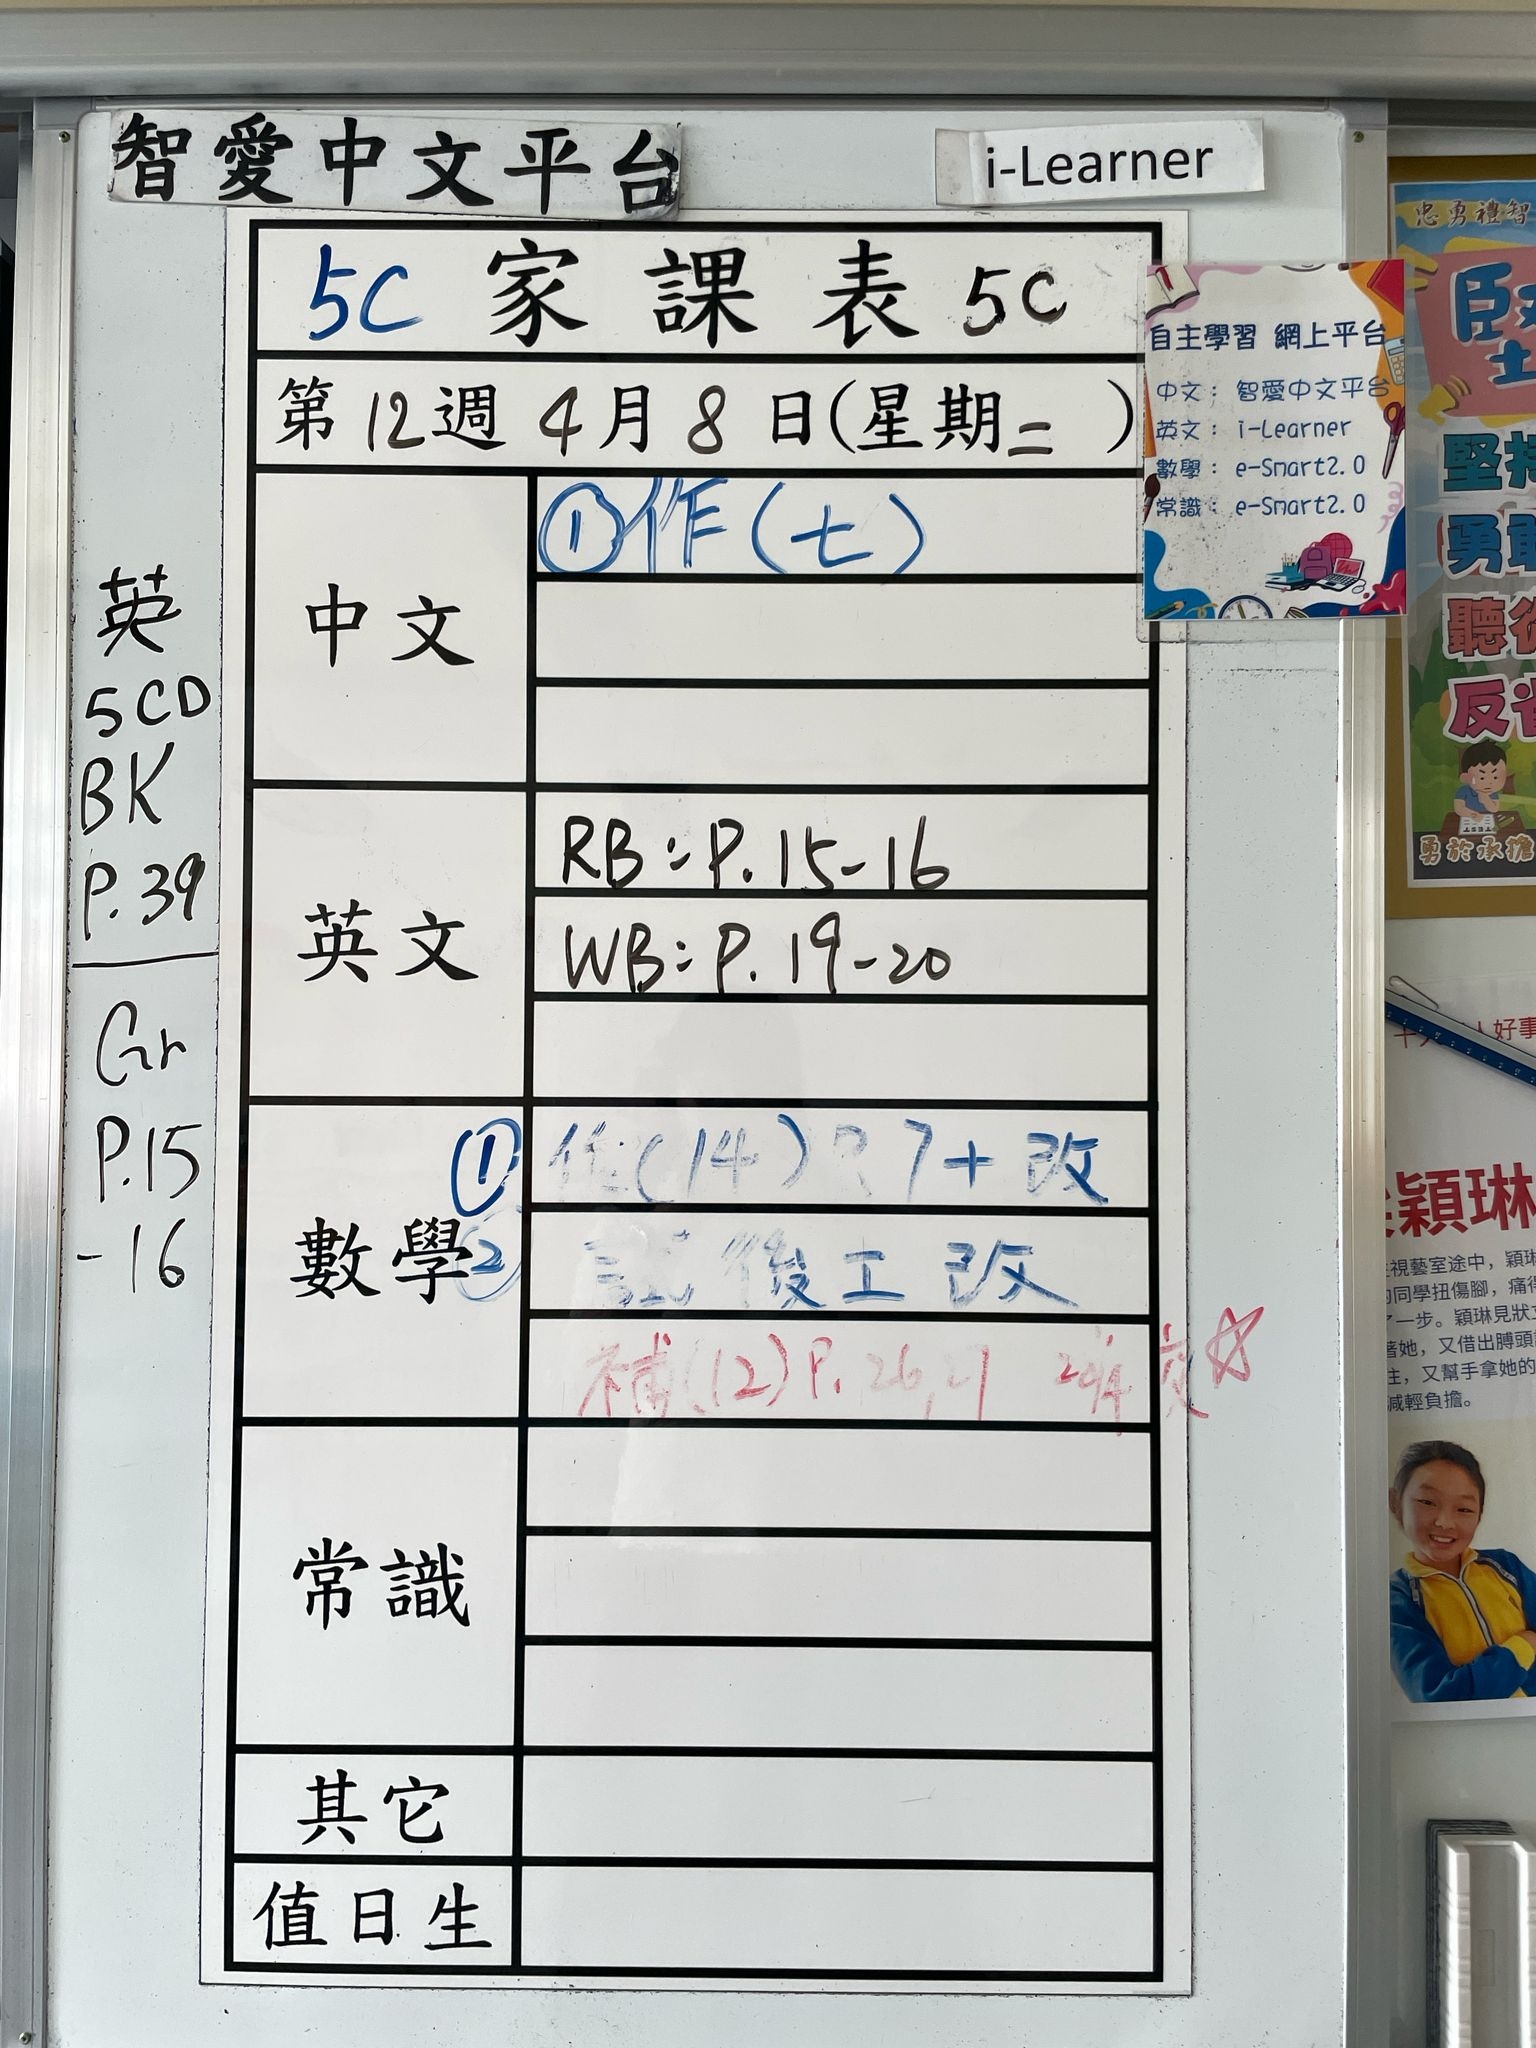 智愛中文平台
i-Learner
5C 家課表 5C
第12週 4月8日(星期二)
中文
①作(七)
英文
RB:P.15-16
WB:P.19-20
數學
① (14) 7+改
② 後工改
補(12)P.26,27
常識
其它
值日生
英
5CD
BK
P.39
Gr
P.15
-16
自主學習 網上平台
中文: 智愛中文平台
英文: i-Learner
數學: e-Smart2.0
常識: e-Smart2.0
忠勇禮智
堅持
勇敢
反省
勇於承擔
好事
穎琳
視藝室途中,穎琳
同學扭傷腳,痛得
一步。穎琳見狀立
著她,又借出膊頭
住,又幫手拿她的
減輕負擔。